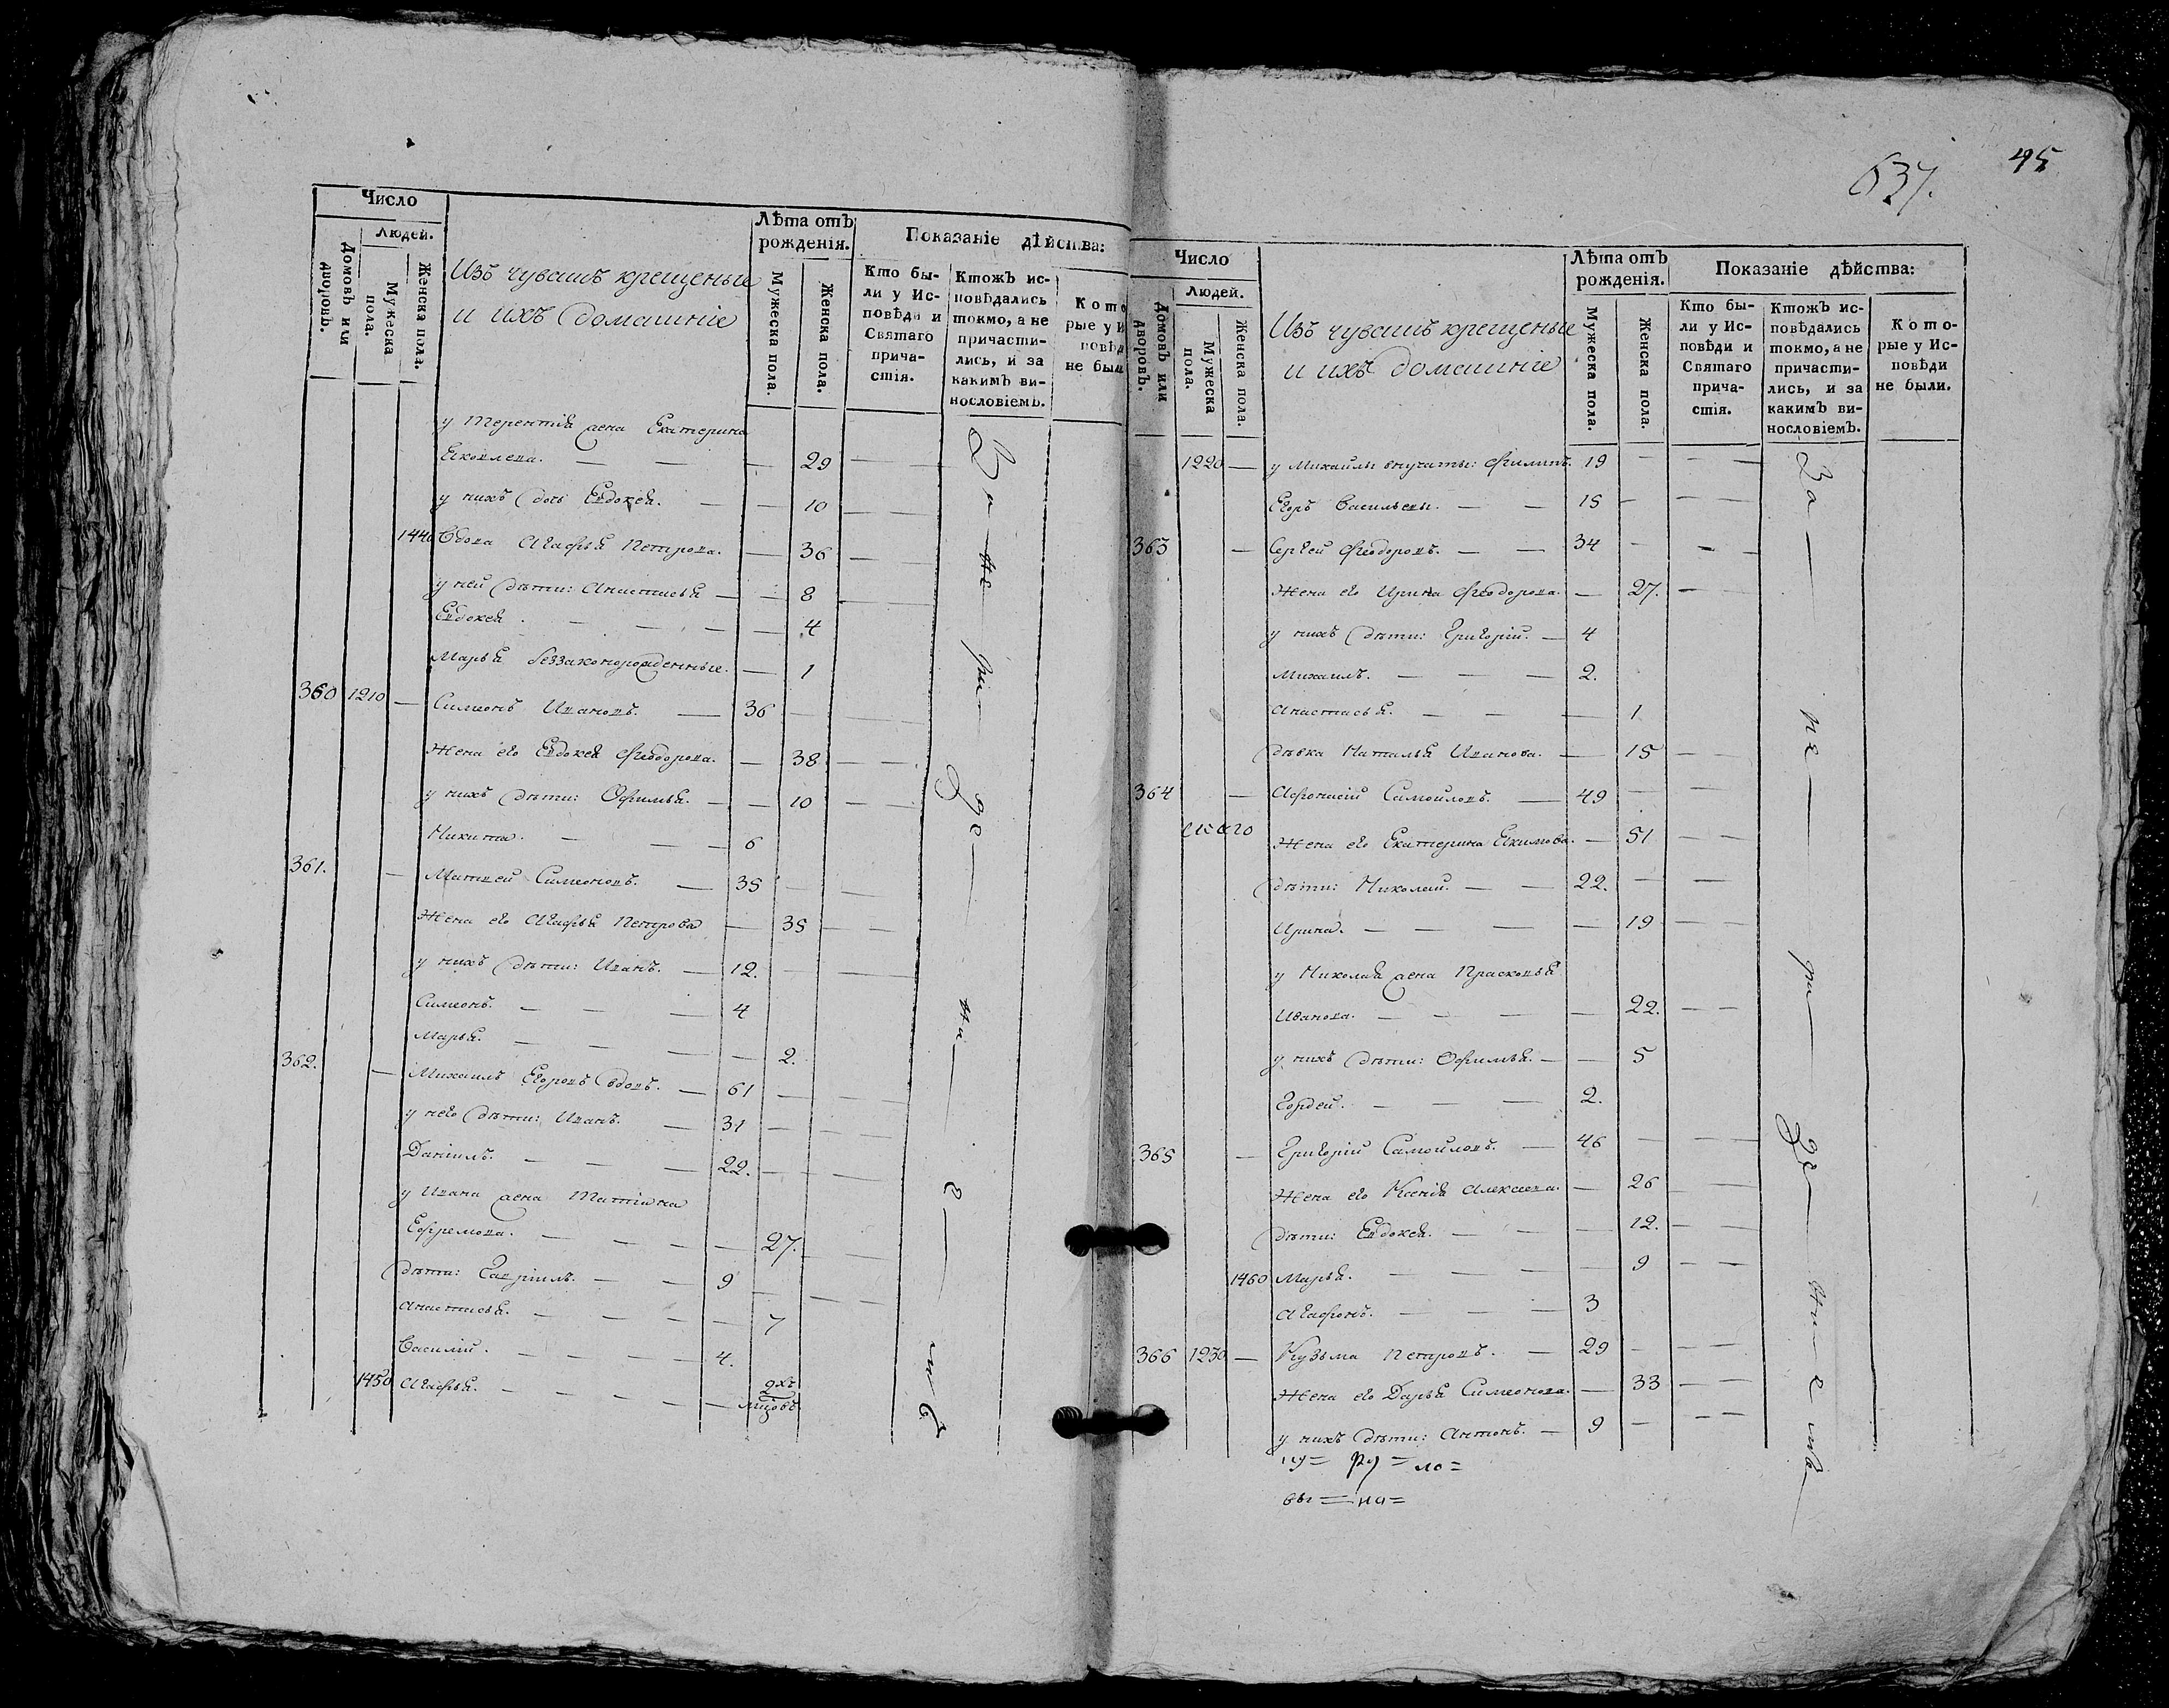 637. 45
Число
Людей.
Домовъ или дворовъ.
Мужеска пола.
Женска пола.
Изъ чувашъ крещеныe
и ихъ домашніе
Лѣта отъ рожденія.
Мужеска пола.
Женска пола.
Показаніе дѣйства:
Кто бы-
ли у Ис-
повѣди и
Святаго
прича-
стія.
Ктожъ ис-
повѣдались
токмо, а не
причасти-
лись, и за
какимъ ви-
нословіемъ.
Кото
рые у И
повѣд
не был
у Терентія жена Екатерина
Яковлева. 29
у нихъ дочь Евдокея. 10
1440 Вдова Агафья Петрова. 36
у ней дѣти: Анастасья 8
Евдокея. 4
Марья беззаконорожденные. 1
360 1210 Симеонъ Ивановъ. 36
Жена его Евдокея Феодорова. 38
у нихъ дѣти: Офимья. 10
Никита. 6
361. Матвей Симеоновъ. 35
Жена его Агафья Петрова 35
у нихъ дѣти: Иванъ. 12.
Симеонъ. 4
Марья. 2.
362. Михаилъ Егоровъ вдовъ. 61
у него дѣти: Иванъ. 31
Даніилъ. 22.
у Ивана жена Татіана
Ефремова. 27.
дѣти: Гавріилъ. 9
Анастасья. 7
Василій. 4.
1450 Агафья. 2хъ
мцовъ
За не ра де ни е мъ
Число
Людей.
Домовъ или дворовъ.
Мужеска пола.
Женска пола.
Изъ чувашъ крещеные
и ихъ домашніе
Лѣта отъ рожденія.
Мужеска пола.
Женска пола.
Показаніе дѣйства:
Кто бы-
ли у Ис-
повѣди и
Святаго
прича-
стія.
Ктожъ ис-
повѣдались
токмо, а не
причасти-
лись, и за
какимъ ви-
нословіемъ.
Кото-
рые у Ис-
повѣди
не были.
1220 у Михайлы внучаты: Филипъ. 19
Егоръ Васильевы. 15
363 Сергей Феодоровъ. 34
Жена его Ирина Феодорова. 27.
у нихъ дѣти: Григорій. 4
Михаилъ. 2.
Анастасья. 1
дѣвка Наталья Иванова. 15
364 Афонасій Самойловъ. 49
Жена его Екатерина Екимова. 51
дѣти: Николай. 22.
Ирина. 19
у Николая жена Прасковья
Иванова. 22.
у нихъ дѣти: Офимья. 5
Гордей. 2.
365 Григорій Самойловъ. 46
Жена его Ксенія Алексеева. 26
дѣти: Евдокея. 12.
1460 Марья. 9
Агафонъ. 3
366 1230 Кузьма Петровъ. 29
Жена его Дарья Симеонова. 33
у нихъ дѣти: Антонъ. 9
За не ра де ни е мъ